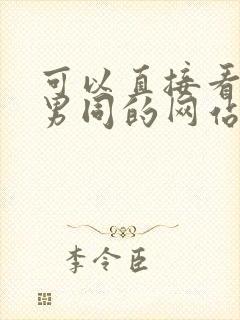 可以直接看
男同的网站
李令臣